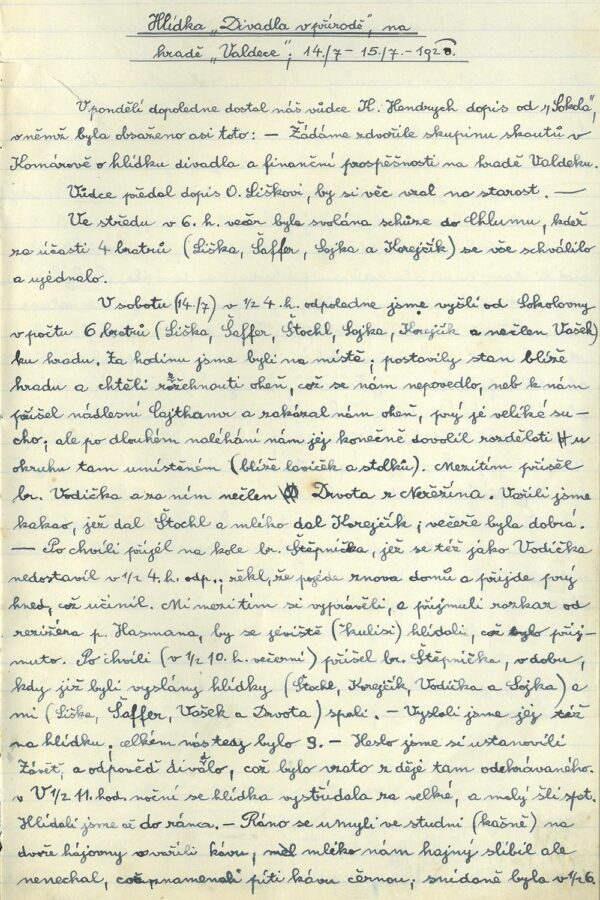 Hlídka „Divadla v přírodě", na
hradě „Valdece"; 14./7 - 15./7. - 1928.
V pondělí dopoledne dostal náš vůdce K. Hendrych dopis od „Sokola",
v němž byla obsaženo asi toto: — Žádáme zdvořile skupinu skautů v
Komárově o hlídku divadla a finanční prospěšnosti na hradě Valdeku.
Vůdce předal dopis O. Liškovi, by si věc vzal na starost. —
Ve středu v 6. h. večer byla svolána schůze do Chlumu, kdež
za účasti 4 bratrů (Liška, Šaffer, Sojka a Korejčík) se vše schválilo
a ujednalo.
V sobotu (14./7) v 1/2 4. h. odpoledne jsme vyšli od Sokolovny
v počtu 6 bratrů (Liška, Šaffer, Štochl, Sojka, Korejčík a nečlen Vašek)
ku hradu. Za hodinu jsme byli na místě; postavily stan blíže
hradu a chtěli rozžehnouti oheň, což se nám nepovedlo, neb k nám
přišel nádlesní Cajthamr a zakázal nám oheň, prý jé veliké su-
cho; ale po dlouhém naléhání nám jej konečně dovolil rozdělati u
okruhu tam umístěném (blíže laviček a stolků). Mezitím přišel
br. Vodička a za ním nečlen Drvota z Neřěžína. Vařili jsme
kakao, jež dal Štochl a mlého dal Korejčík; večeře byla dobrá.
— Po chvíli přijěl na kole br. Štěpnička, jež se též jáko Vodička
nedostavil v 1/2 4. h. odp.; řěkl, že pojede znova domů a přijde prý
hned, což učinil. Mi mezitím si vyprávěli, a přijmuli rozkaz od
rezižéra p. Hasmana, by se jeviště (kulisi) hlídali, což bylo přij-
muto. Po chvíli (v 1/2 10. h. večerní) přišel br. Štěpnička, v dobu,
kdy již byli vyslány hlídky (Štochl, Korejčík, Vodička a Sojka) a
mi (Liška, Šaffer, Vašek a Drvota) spali. — Vyslali jsme jěj též
na hlídku. celkém nás tedy bylo 9. — Heslo jsme si ustanovili
Závěť, a odpověď divadlo, což bylo vzato z děje tam odehrávaného.
v V 1/2 11. hod. noční se hlídka vystřídala za velké, a malý šli spat.
Hlídali jsme až do ránca. — Ráno se umyli ve studni (kašně) na
dvoře hájovny uvařili kávu, mléko nám hajný slíbil ale
nenechal, což znamenali píti kávu černou; snídaně byla v 1/2 6.